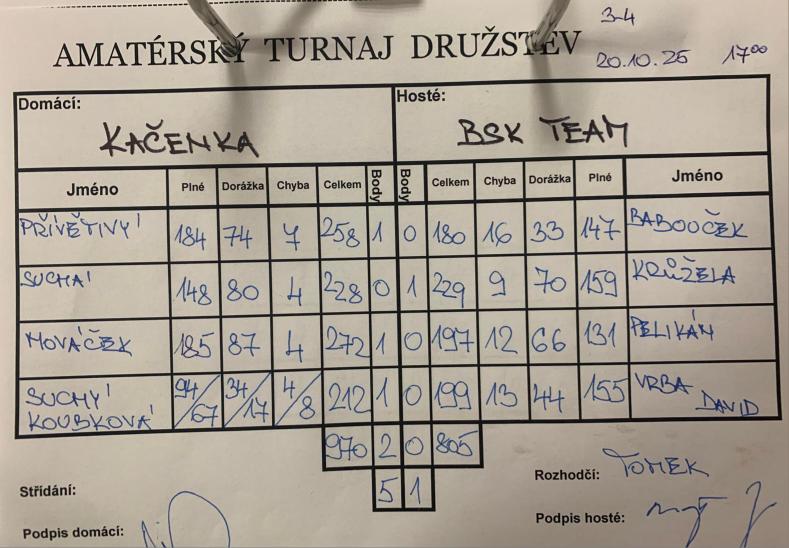 3-4
AMATÉRSKÝ TURNAJ DRUŽSTEV
20.10.25 17⁰⁰
Domácí: Hosté:
KAČENKA BSK TEAM
Jméno Plné Dorážka Chyba Celkem Body Body Celkem Chyba Dorážka Plné Jméno
PŘÍVĚTIVÝ 184 74 7 258 1 0 180 16 33 147 BABOUČEK
SUCHÁ 148 80 4 228 0 1 229 9 70 159 KRŮŽELA
NOVÁČEK 185 87 4 272 1 0 197 12 66 131 PELIKÁN
SUCHÝ 94/67 34/17 4/8 212 1 0 199 13 44 155 VRBA
KOUBKOVÁ DAVID
970 2 0 805
5 1
Střídání: Rozhodčí: TOMEK
Podpis domácí: Podpis hosté: